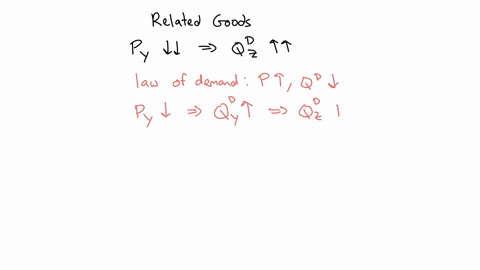 Related Goods
P_y ↓↓ ⇒ Q_z^D ↑↑
law of demand: P↑, Q^D ↓
P_y ↓ ⇒ Q_y^D ↑ ⇒ Q_z^D |